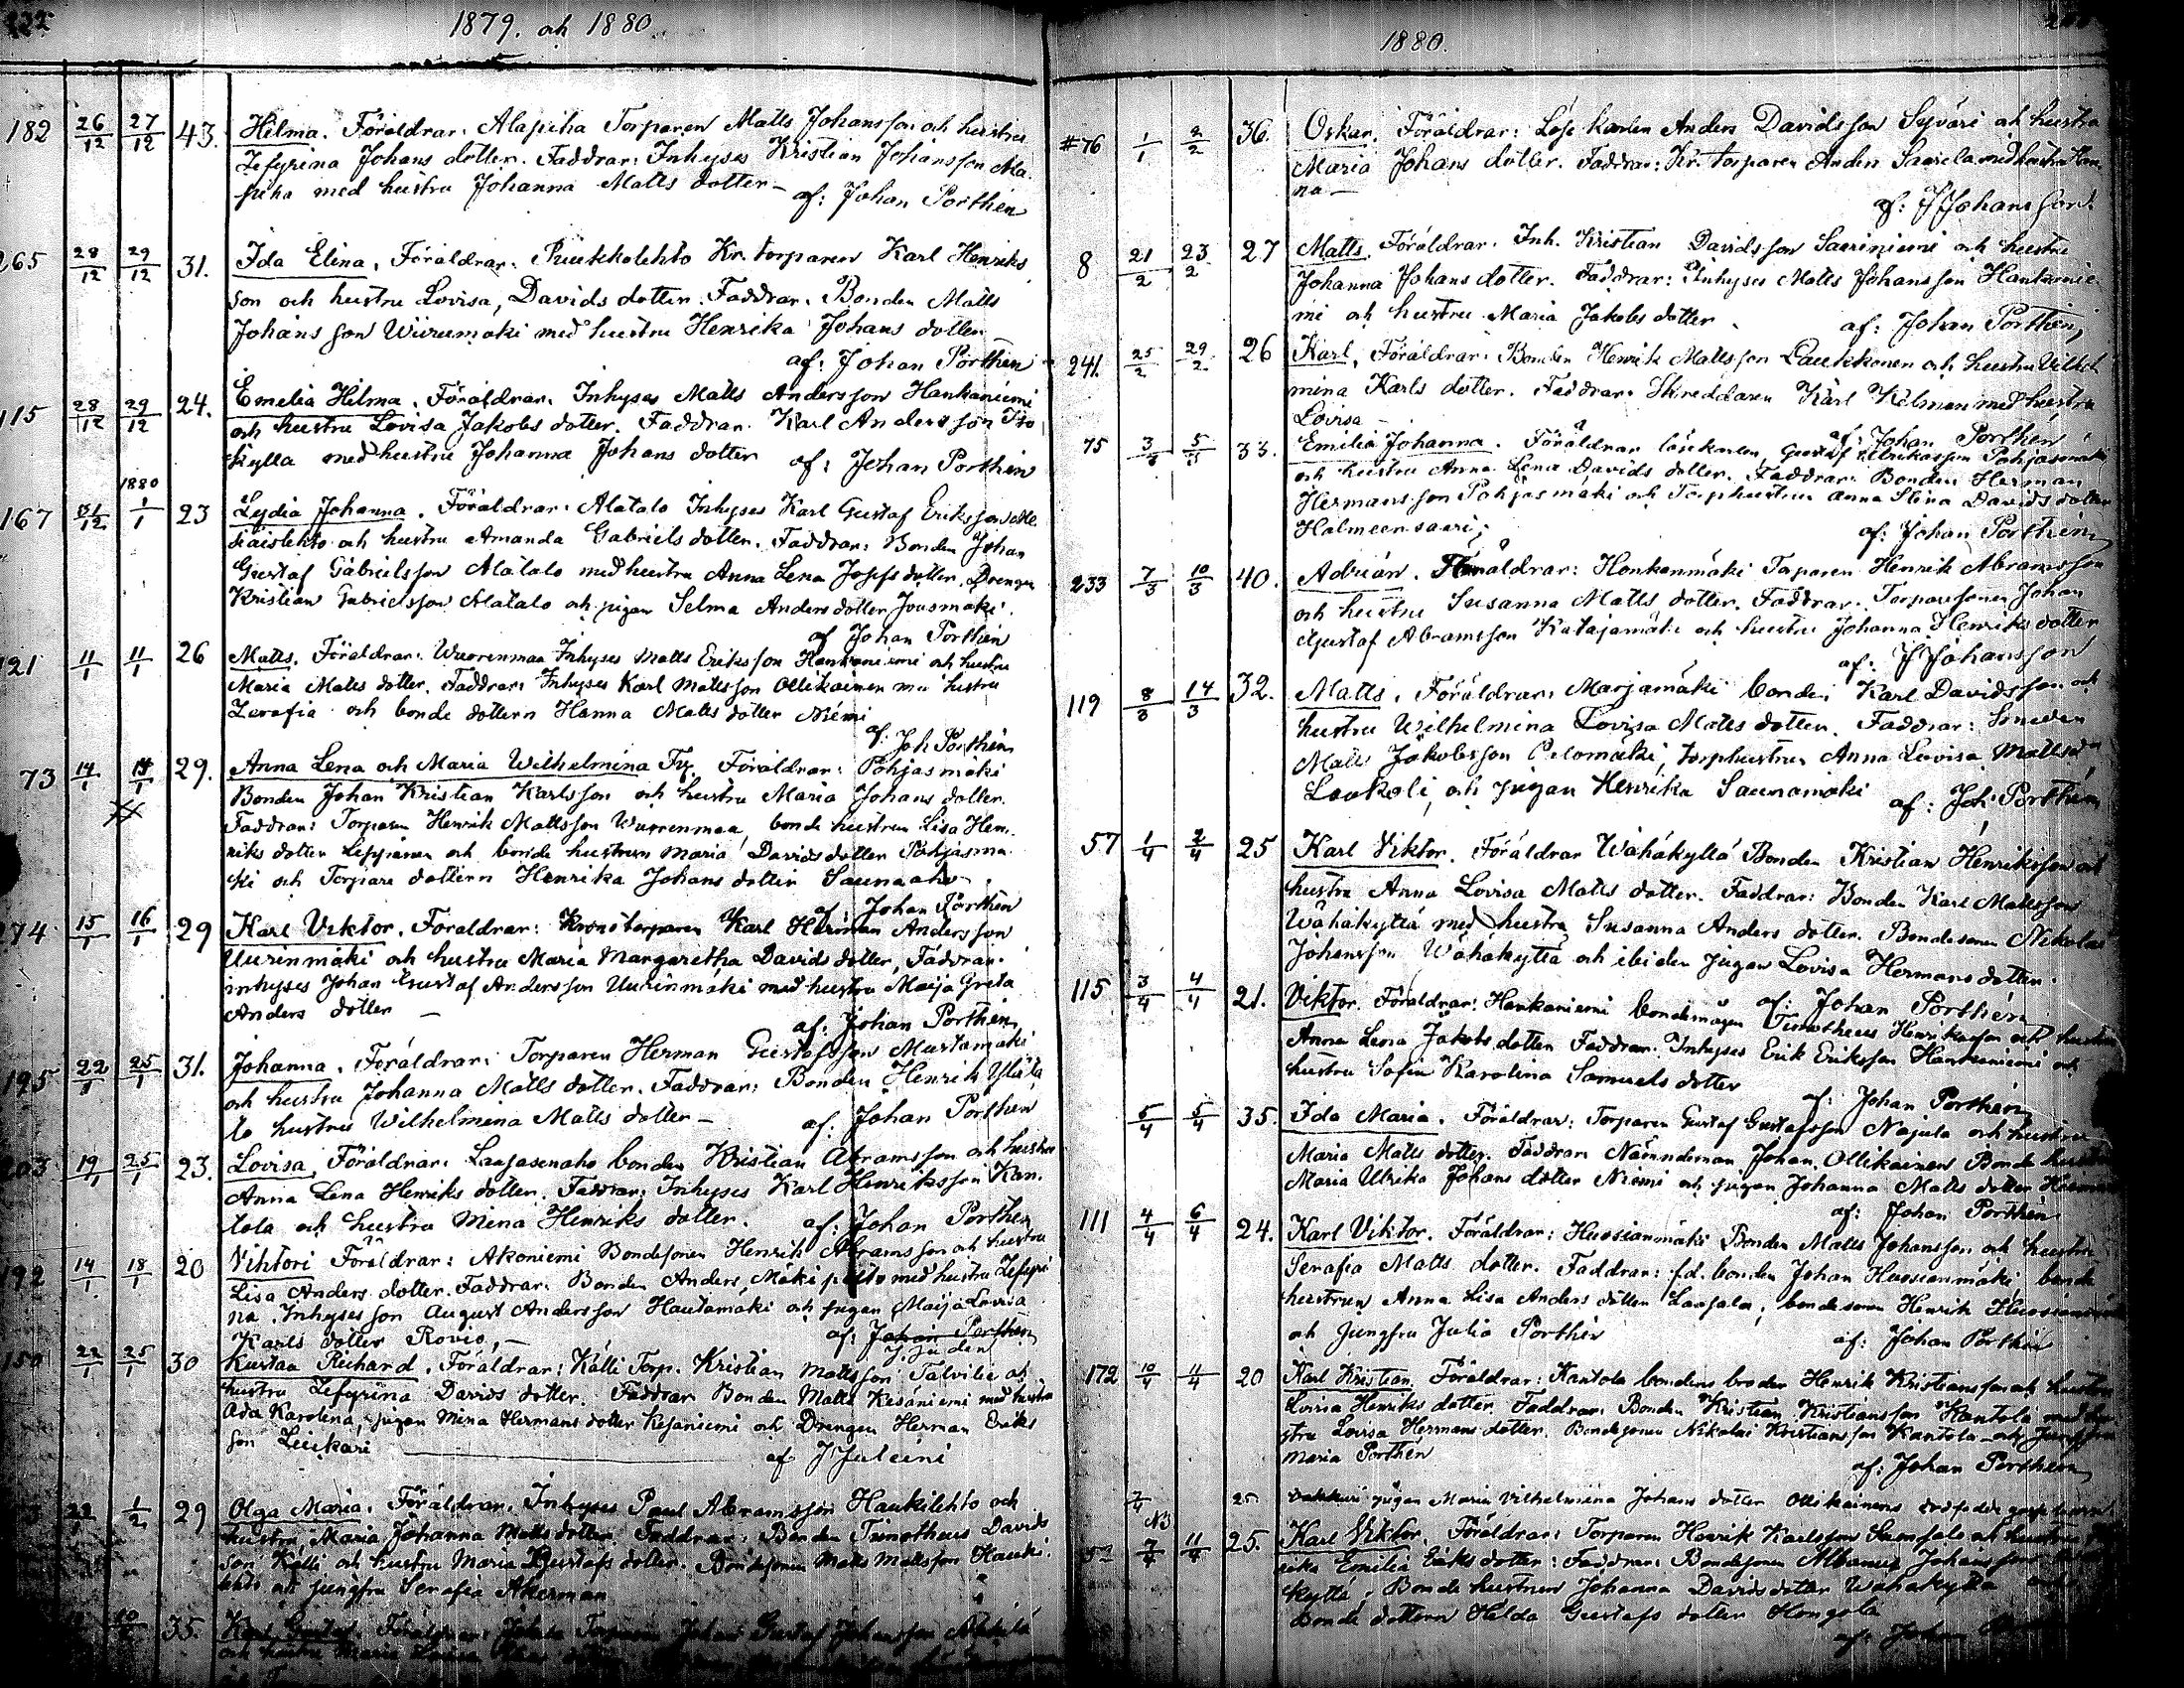 232
1879. och 1880.
182 26/12 27/12 43. Hilma. Föräldrar: Alapiha Torparen Matts Johansson och hustru
Zefyrina Johans dotter. Faddrar: Inhyses Kristian Johansson Ala
piha med hustru Johanna Matts dotter –
af: Johan Porthén
265 28/12 29/12 31. Ida Elina. Föräldrar: Puukkolehto Kr. torparen Karl Henriks
son och hustru Lovisa, Davids dotter. Faddrar: Bonden Matts
Johansson Wiirumäki med hustru Henrika Johans dotter
af: Johan Porthén
115 28/12 29/12 24. Emelia Hilma. Föräldrar: Inhyses Matts Andersson Hankaniemi
och hustru Lovisa Jakobs dotter. Faddrar: Karl Andersson Iso
kylla med hustru Johanna Johans dotter af: Johan Porthén
1880
167 31/12 1/1 23 Lydia Johanna. Föräldrar: Alatalo Inhyses Karl Gustaf Eriksson
och hustru Amanda Gabriels dotter. Faddrar: Bonden Johan
Gustaf Gabrielsson Alatalo med hustru Anna Lena Josefs dotter, Drengen
Kristian Gabrielsson Alatalo och pigan Selma Anders dotter Jousmäki.
af Johan Porthén
121 11/1 11/1 26 Matts. Föräldrar: Wuorenmaa Inhyses Matts Eriksson Hankaniemi och hustru
Maria Matts dotter. Faddrar: Inhyses Karl Mattsson Ollikainen med hustru
Zerafia och bonde dottern Hanna Matts dotter Niemi
af: Joh Porthén
73 14/1 14/1 29. Anna Lena och Maria Wilhelmina Tv. Föräldrar: Pohjasmäki
Bonden Johan Kristian Karlsson och hustru Maria Johans dotter.
Faddrar: Torparen Henrik Mattsson Wuorenmaa, bonde hustrun Lisa Hen-
riks dotter Leppänen och bonde hustrun Maria Davids dotter Pohjasmä
ki och Torpare dottern Henrika Johans dotter Saunaaho
af Johan Porthén
274 15/1 16/1 29 Karl Viktor. Föräldrar: Kronotorparen Karl Herman Andersson
Uurinmäki och hustru Maria Margaretha Davids dotter, Faddrar:
inhyses Johan Gustaf Andersson Uurinmäki med hustru Maija Greta
Anders dotter –
af: Johan Porthén
195 22/1 25/1 31. Johanna. Föräldrar: Torparen Herman Gustafsson Mustamäki
och hustru Johanna Matts dotter. Faddrar: Bonden Henrik Ylita
lo hustru Wilhelmina Matts dotter – af: Johan Porthén
203 19/1 25/1 23. Lovisa, Föräldrar: Laajasenaho bonden Kristian Abramsson och hustru
Anna Lena Henriks dotter. Faddrar: Inhyses Karl Henriksson Kan-
tola och hustru Mina Henriks dotter. af: Johan Porthén
192 14/1 18/1 20 Viktori Föräldrar: Akoniemi Bondesonen Henrik Abramsson och hustru
Lisa Anders dotter. Faddrar: Bonden Anders Mäkipelto med hustru Zefyri
na. Inhyses son August Andersson Hautamäki och pigan Maija Lovisa
Karls dotter Rovio, – af: Johan Porthén
150 22/1 25/1 30 Kustaa Richard. Föräldrar: Källi Torp. Kristian Mattsson Talvilie och
hustru Zefyrina Davids dotter. Faddrar Bonden Matts Kesäniemi med hustru
Ada Karolina, pigan Mina Hermans dotter Kesäniemi och Drengen Herman Eriks
son Liukari af J Juleini
22/1 1/2 29 Olga Maria. Föräldrar. Inhyses Paul Abramsson Haukilehto och
hustru, Maria Johanna Matts dotter. Faddrar: Bonden Timotheus Davids
son Källi och hustru Maria Gustafs dotter. Bondesonen Matts Mattsson Hauki-
lehto och jungfru Serafia Åkerman
35. Karl Gustaf. Föräldrar: Torparen Johan Gustaf Johansson
och hustru Maria Lovisa
1880.
#76 1/1 2/2 36. Oskar. Föräldrar: Löse karlen Anders Davidsson Syväri och hustru
Maria Johans dotter. Faddrar: Kr. torparen Anders Saarela med hustru Han
na –
af: J Johansson.
8 21/2 23/2 27 Matts. Föräldrar. Inh. Kristian Davidsson Saariniemi och hustru
Johanna Johans dotter. Faddrar: Inhyses Matts Johansson Hankanie
mi och hustru Maria Jakobs dotter. af: Johan Porthén,
241. 25/2 29/2 26 Karl. Föräldrar: Bonden Henrik Mattsson Laukkonen och hustru Vilhel
mina Karls dotter. Faddrar: Skreddaren Karl Kilman med hustru
Lovisa – af: Johan Porthén
75 3/3 5/3 33. Emilia Johanna. Föräldrar löskarlen Gustaf Ulriksson Pohjasmäki
och hustru Anna Lena Davids dotter. Faddrar: Bonden Herman
Hermansson Pohjasmäki och Torphustrun Anna Stina Davids dotter
Halmeensaari; af: Johan Porthén
233 7/3 10/3 40. Adrian. Föräldrar: Honkanmäki Torparen Henrik Abramsson
och hustru Susanna Matts dotter. Faddrar: Torparsonen Johan
Gustaf Abramsson Katajamäki och hustru Johanna Henriks dotter
af: J Johansson
119 8/3 14/3 32. Matts. Föräldrar: Marjamäki bonden Karl Davidsson och
hustru Wilhelmina Lovisa Matts dotter. Faddrar: Smeden
Matts Jakobsson Pelomäki, torphustrun Anna Lovisa Matts dr
Laakoli, och pigan Henrika Saunamäki af: Joh: Porthén
57 1/4 2/4 25 Karl Viktor. Föräldrar Wähäkyttä Bonden Kristian Henriksson och
hustru Anna Lovisa Matts dotter. Faddrar: Bonden Karl Mattsson
Wähäkyttä med hustru Susanna Anders dotter. Bondesonen Nikolai
Johansson Wähäkyttä och ibiden pigan Lovisa Hermans dotter.
af: Johan Porthén
115 3/4 4/4 21. Viktor. Föräldrar: Hankaniemi bondemågen Timotheus Henriksson och hustru
Anna Lena Jakobs dotter Faddrar: Inhyses Erik Eriksson Hankaniemi och
hustru Sofia Karolina Samuels dotter
af: Johan Porthén
5/4 5/4 35. Ida Maria. Föräldrar: Torparen Gustaf Gustafsson Najula och hustru
Maria Matts dotter. Faddrar Nämndeman Johan Ollikainen Bonde hustru
Maria Ulrika Johans dotter Niemi och pigan Johanna Matts dotter
af: Johan Porthén
111 4/4 6/4 24. Karl Viktor. Föräldrar: Huosianmäki Bonden Matts Johansson och hustru
Serafia Matts dotter. Faddrar: f.d. bonden Johan Huosianmäki bonde
hustrun Anna Lisa Anders dotter Laajala, bondesonen Henrik Huosianmäki
och Jungfru Julia Porthén af: Johan Porthén
172 10/4 11/4 20 Karl Kristian. Föräldrar: Kantola bondens broder Henrik Kristiansson och hustru
Lovisa Henriks dotter. Faddrar: Bonden Kristian Kristiansson Kantola med hu
stru Lovisa Hermans dotter. Bondesonen Nikolai Kristiansson Kantola och Jungfru
Maria Porthén
af: Johan Porthén
7/4 25. pigan Maria Vilhelmina Johans dotter Ollikainens
N3
57 7/4 11/4 25. Karl Viktor. Föräldrar: Torparen Henrik Karlsson och hustru
Emilia Eriks dotter: Faddrar: Bondesonen Albanus Johansson
kyttä, Bonde hustrun Johanna Davids dotter Wähäkyttä och
Bonde dottern Hilda Gustafs dotter Hongola
af: Johan